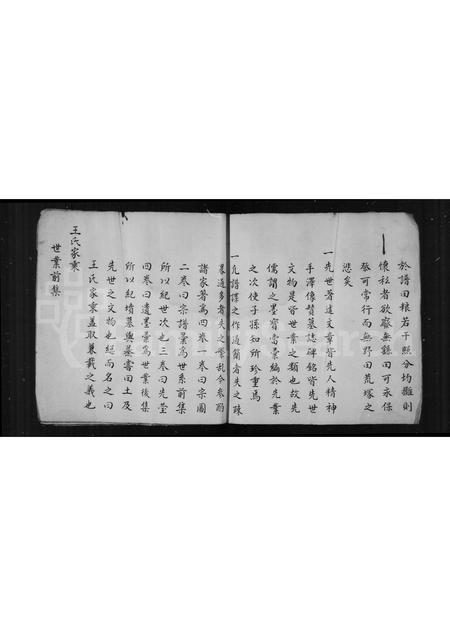 於譜田粮若干照分均攤則
懷私者欲齋無繇田可永保
祭可常行而無野田荒塚之
悲矣
一先世著述文章皆先人精神
手澤像贊墓誌碑銘皆先世
文物是皆世業之類也故先
儒謂之墨寶當彙編於先業
之次使子孫知所珍重焉
一凡譜譯之作過簡者失之珠
畧過多者失之繁乱今參酌
諸家著為四卷一卷曰宗圖
二卷曰宗譜彙為世系前集
所以紀世次也三卷曰先塋
四卷曰遺墨彙為世業後集
所以紀墳墓與墓書田土及
先世之文物也總而名之曰
王氏家乘盖取兼載之義也
王氏家乘
世業前集